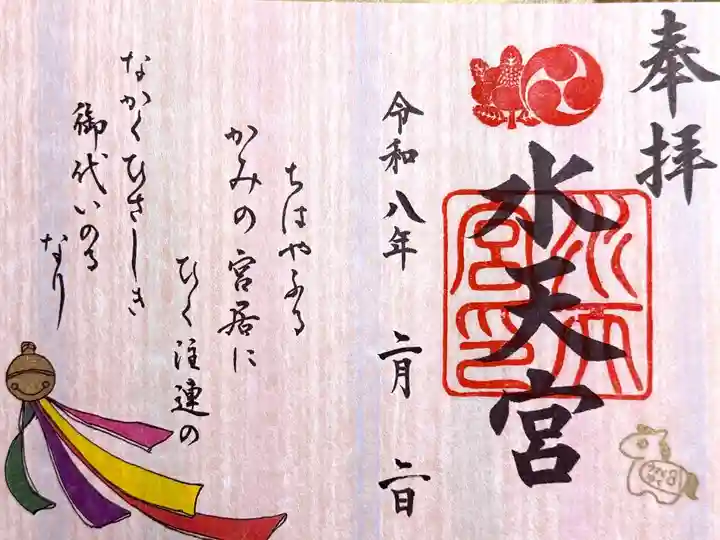 奉拝
水天宮
水天
宮印
令和八年 二月 二日
ちはやふる
かみの宮居に
ひく注連の
なかくひさしき
御代いのる
なり